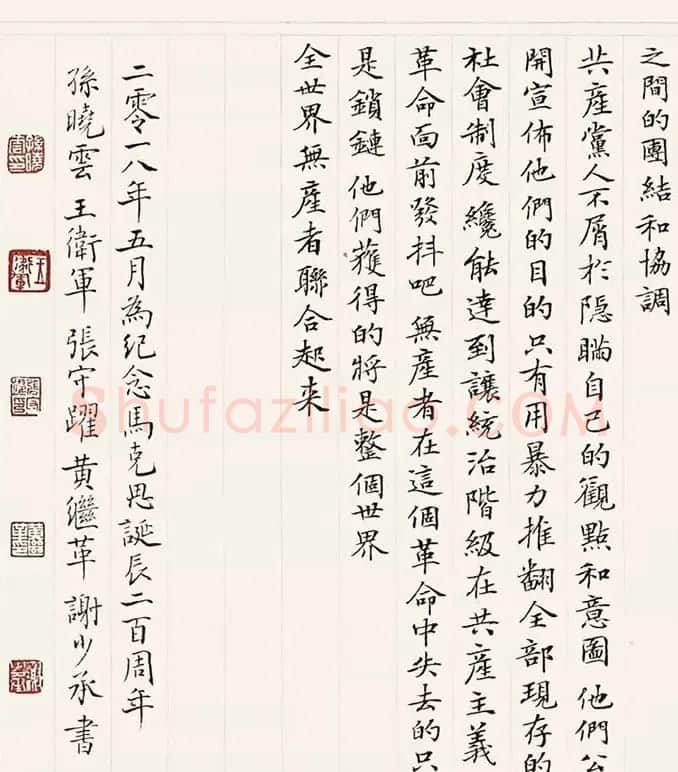 之間的團結和協調
共產黨人不屑於隱瞞自己的觀點和意圖 他們公
開宣佈他們的目的只有用暴力推翻全部現存的
社會制度 纔能達到 讓統治階級在共產主義
革命面前發抖吧 無產者在這個革命中失去的只
是鎖鏈 他們獲得的將是整個世界
全世界無產者聯合起来
二零一八年五月為紀念馬克思誕辰二百周年
孫曉雲 王衛軍 張守躍 黄繼革 謝少承 書
Shufaziliao.COM